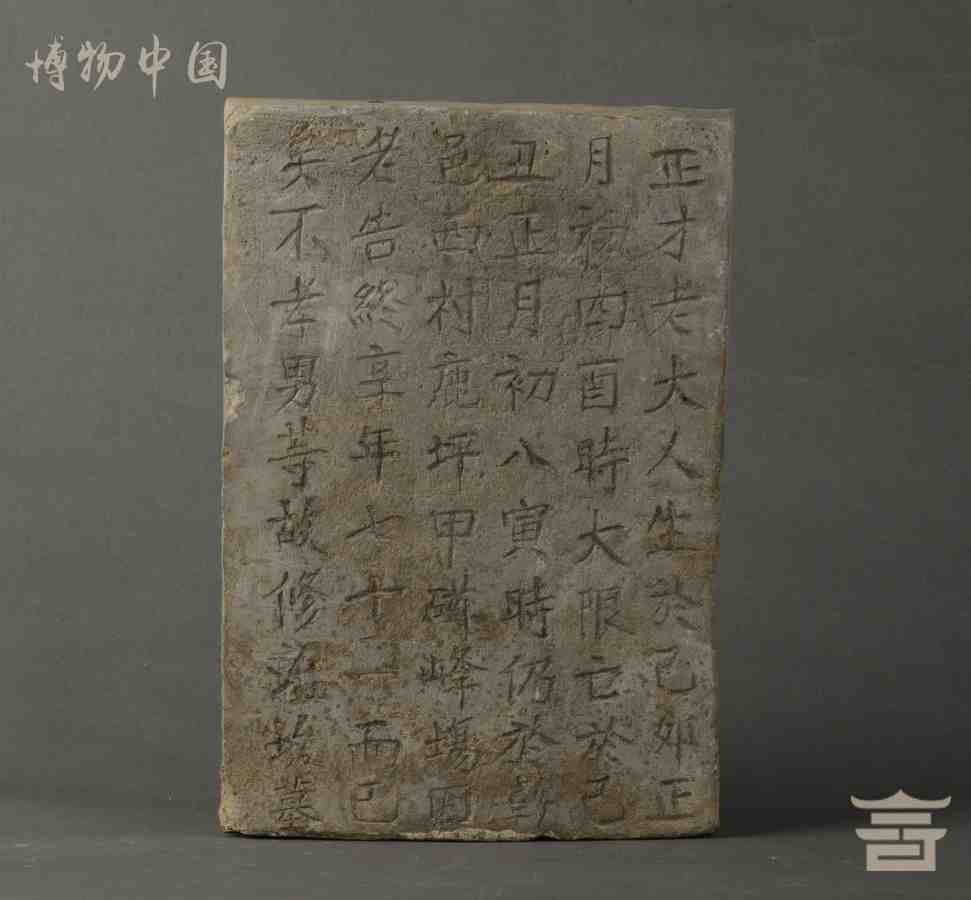 博物中国
正才老大人生於己卯正
月初四酉時大限亡於己
丑正月初八寅時仍於
邑西村鹿坪甲磷峰塲因
老告終享年七十一而已
矣不孝男等故修墓